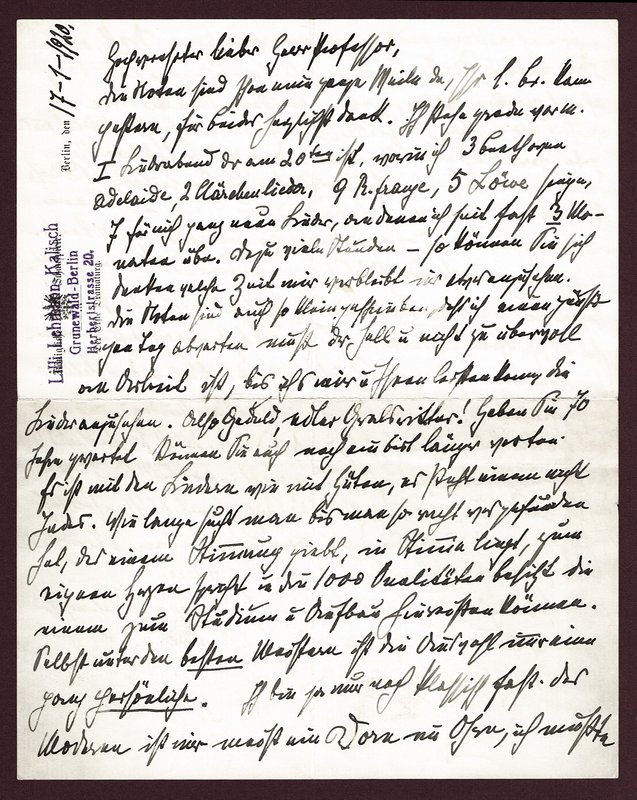 Berlin, den 17-1-1920.
Lilli Lehmann-Kalisch
Grunewald-Berlin
Herbertstrasse 20.
Hochverehrter lieber Herr Professor,
die Noten sind schon eine ganze Weile da, Ihr l. br. kam
gestern, für beides herzlichst dank. Ich stehe grade vorm
I Liederabend der am 20ten ist, worin ich 3 Beethoven
Adelaide, 2 Clärchenlieder, 9 R. franze, 5 Löwe singe,
7 für mich ganz neue Lieder, an denen ich seit fast 3 Mo-
naten übe. Dazu viele Stunden – so können Sie sich
denken welche Zeit mir verbleibt um etwas anzusehen.
Die Noten sind auch so klein geschrieben, dass ich einen
Tag abwarten muss der hell u nicht zu übervoll
an Arbeit ist, bis ich's mir u Ihnen leisten kann, die
Lieder anzusehen. Also Geduld edler Gralsritter! Haben Sie 70
Jahre gewartet können Sie auch noch ein bisl länger warten.
Es ist mit den Liedern wie mit Hüten, es steht einem nicht
Jedes. Wie lange sucht man bis man so recht was gefunden
hat, das einem Stimmung giebt, in Stimme liegt, zum
eignen Herzen spricht u die 1000 Qualitäten besitzt die
einem zum Studium u Aufbau hinreissen können.
Selbst unter den besten Meistern ist die Auswahl nur eine
ganz persönliche. Ich bin ja nur noch klassisch fast. das
Moderne ist mir meist ein Dorn im Ohre, ich müsste